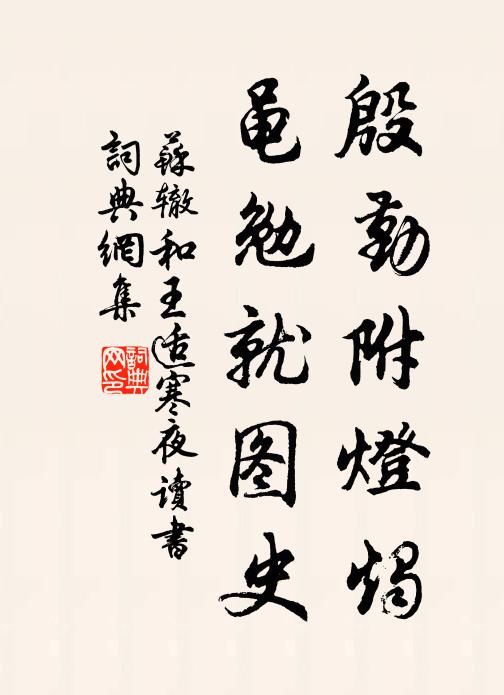 殷勤附燈燭
黽勉就图史
蘇辙和王适寒夜讀書
詞典網集
詞典网印